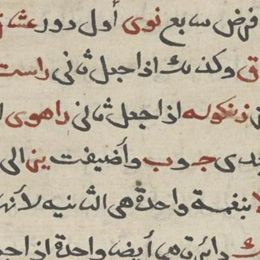 فرض سابع نوى أول دور عشا
ق وكذلك اذا جعل ثانى راست
زنكوله اذا جعل ثانى راهوى ا
دى جوب وأضيفت ين الى
بنغمة واحدة هى الثانيه لأنها
دائرة هى أيضا واحدة اذا اجم